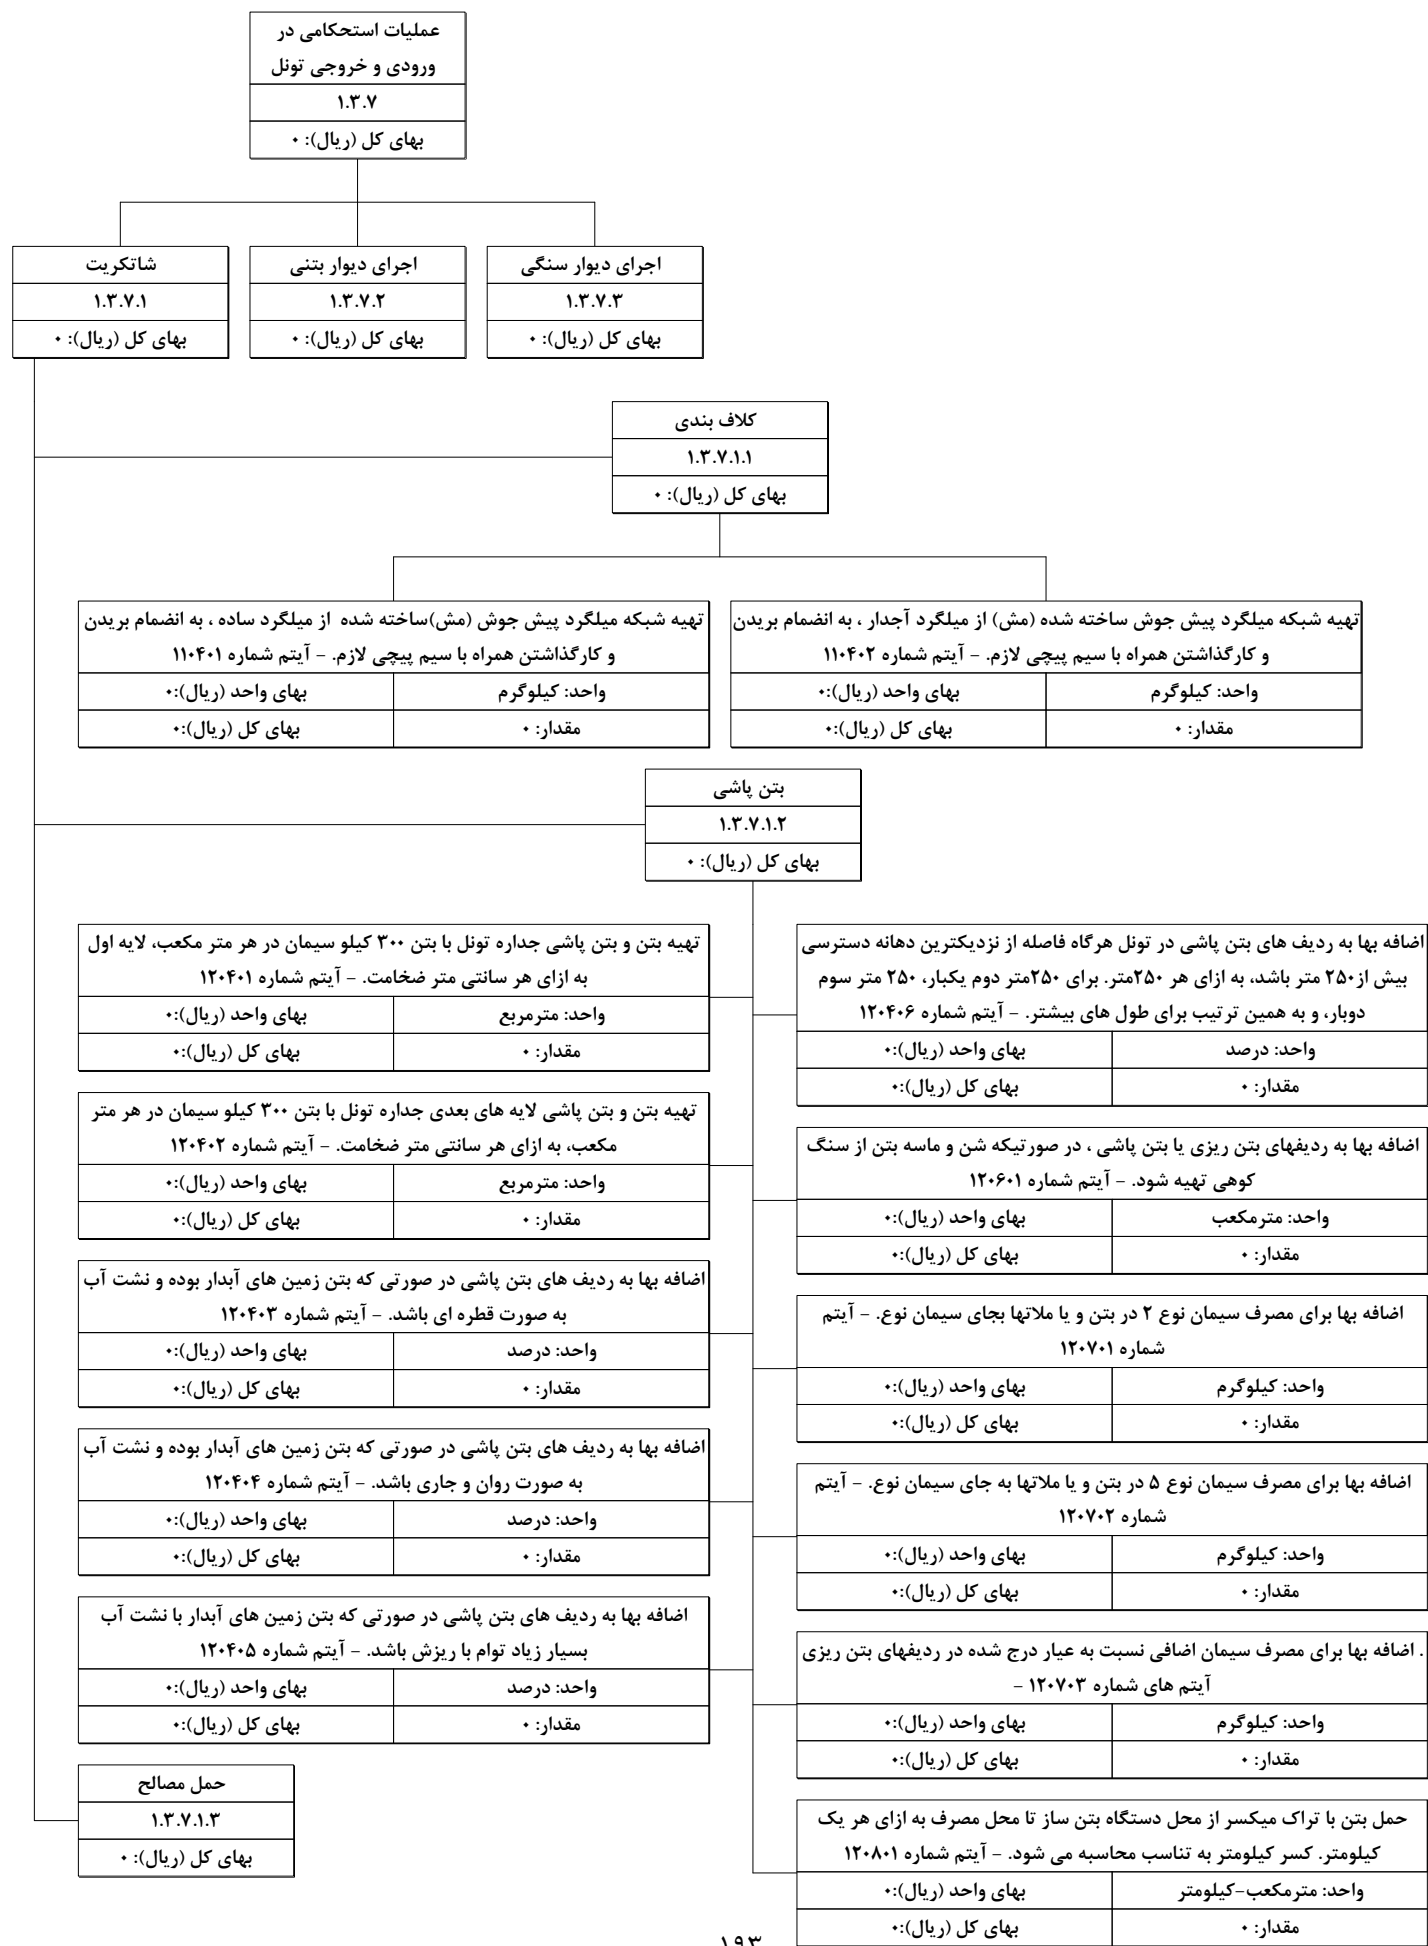 عملیات استحکامی در
ورودی و خروجی تونل
۱.۳.۷
بهای کل (ریال): ۰
اجرای دیوار سنگی
۱.۳.۷.۳
بهای کل (ریال): ۰
اجرای دیوار بتنی
۱.۳.۷.۲
بهای کل (ریال): ۰
شاتکریت
۱.۳.۷.۱
بهای کل (ریال): ۰
کلاف بندی
۱.۳.۷.۱.۱
بهای کل (ریال): ۰
تهیه شبکه میلگرد پیش جوش ساخته شده (مش) از میلگرد آجدار ، به انضمام بریدن
و کارگذاشتن همراه با سیم پیچی لازم. - آیتم شماره ۱۱۰۴۰۲
واحد: کیلوگرم
بهای واحد (ریال):۰
مقدار: ۰
بهای کل (ریال):۰
تهیه شبکه میلگرد پیش جوش (مش)ساخته شده از میلگرد ساده ، به انضمام بریدن
و کارگذاشتن همراه با سیم پیچی لازم. - آیتم شماره ۱۱۰۴۰۱
واحد: کیلوگرم
بهای واحد (ریال):۰
مقدار: ۰
بهای کل (ریال):۰
بتن پاشی
۱.۳.۷.۱.۲
بهای کل (ریال): ۰
اضافه بها به ردیف های بتن پاشی در تونل هرگاه فاصله از نزدیکترین دهانه دسترسی
بیش از۲۵۰ متر باشد، به ازای هر ۲۵۰متر. برای ۲۵۰متر دوم یکبار، ۲۵۰ متر سوم
دوبار، و به همین ترتیب برای طول های بیشتر. - آیتم شماره ۱۲۰۴۰۶
واحد: درصد
بهای واحد (ریال):۰
مقدار: ۰
بهای کل (ریال):۰
اضافه بها به ردیفهای بتن ریزی یا بتن پاشی ، در صورتیکه شن و ماسه بتن از سنگ
کوهی تهیه شود. - آیتم شماره ۱۲۰۶۰۱
واحد: مترمکعب
بهای واحد (ریال):۰
مقدار: ۰
بهای کل (ریال):۰
اضافه بها برای مصرف سیمان نوع ۲ در بتن و یا ملاتها بجای سیمان نوع. - آیتم
شماره ۱۲۰۷۰۱
واحد: کیلوگرم
بهای واحد (ریال):۰
مقدار: ۰
بهای کل (ریال):۰
اضافه بها برای مصرف سیمان نوع ۵ در بتن و یا ملاتها به جای سیمان نوع. - آیتم
شماره ۱۲۰۷۰۲
واحد: کیلوگرم
بهای واحد (ریال):۰
مقدار: ۰
بهای کل (ریال):۰
. اضافه بها برای مصرف سیمان اضافی نسبت به عیار درج شده در ردیفهای بتن ریزی
آیتم های شماره ۱۲۰۷۰۳ -
واحد: کیلوگرم
بهای واحد (ریال):۰
مقدار: ۰
بهای کل (ریال):۰
حمل بتن با تراک میکسر از محل دستگاه بتن ساز تا محل مصرف به ازای هر یک
کیلومتر. کسر کیلومتر به تناسب محاسبه می شود. - آیتم شماره ۱۲۰۸۰۱
واحد: مترمکعب-کیلومتر
بهای واحد (ریال):۰
مقدار: ۰
بهای کل (ریال):۰
تهیه بتن و بتن پاشی جداره تونل با بتن ۳۰۰ کیلو سیمان در هر متر مکعب، لایه اول
به ازای هر سانتی متر ضخامت. - آیتم شماره ۱۲۰۴۰۱
واحد: مترمربع
بهای واحد (ریال):۰
مقدار: ۰
بهای کل (ریال):۰
تهیه بتن و بتن پاشی لایه های بعدی جداره تونل با بتن ۳۰۰ کیلو سیمان در هر متر
مکعب، به ازای هر سانتی متر ضخامت. - آیتم شماره ۱۲۰۴۰۲
واحد: مترمربع
بهای واحد (ریال):۰
مقدار: ۰
بهای کل (ریال):۰
اضافه بها به ردیف های بتن پاشی در صورتی که بتن زمین های آبدار بوده و نشت آب
به صورت قطره ای باشد. - آیتم شماره ۱۲۰۴۰۳
واحد: درصد
بهای واحد (ریال):۰
مقدار: ۰
بهای کل (ریال):۰
اضافه بها به ردیف های بتن پاشی در صورتی که بتن زمین های آبدار بوده و نشت آب
به صورت روان و جاری باشد. - آیتم شماره ۱۲۰۴۰۴
واحد: درصد
بهای واحد (ریال):۰
مقدار: ۰
بهای کل (ریال):۰
اضافه بها به ردیف های بتن پاشی در صورتی که بتن زمین های آبدار با نشت آب
بسیار زیاد توام با ریزش باشد. - آیتم شماره ۱۲۰۴۰۵
واحد: درصد
بهای واحد (ریال):۰
مقدار: ۰
بهای کل (ریال):۰
حمل مصالح
۱.۳.۷.۱.۳
بهای کل (ریال): ۰
۱۹۳